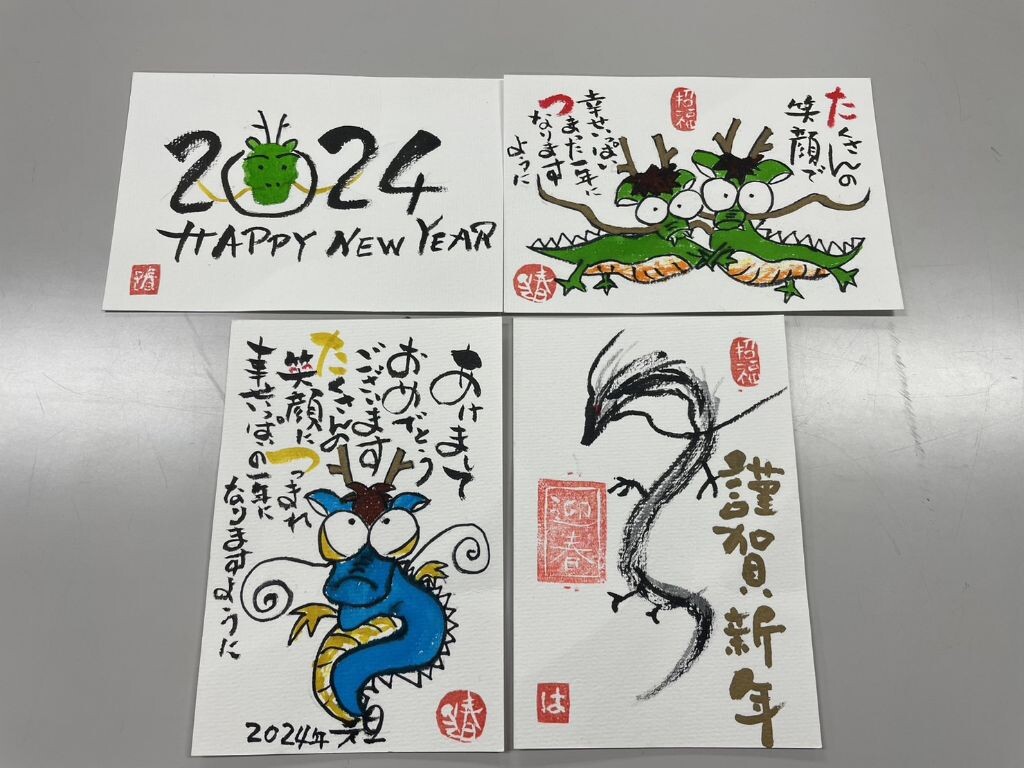 2024
HAPPY NEW YEAR
たくさんの
笑顔で
招福
幸せいっぱい
つまった一年に
なります
ように
春
あけまして
おめでとう
ございます
たくさんの
笑顔に つつまれ
幸せいっぱいの一年に
なりますように
2024年 元旦
春
招福
謹賀新年
迎春
は